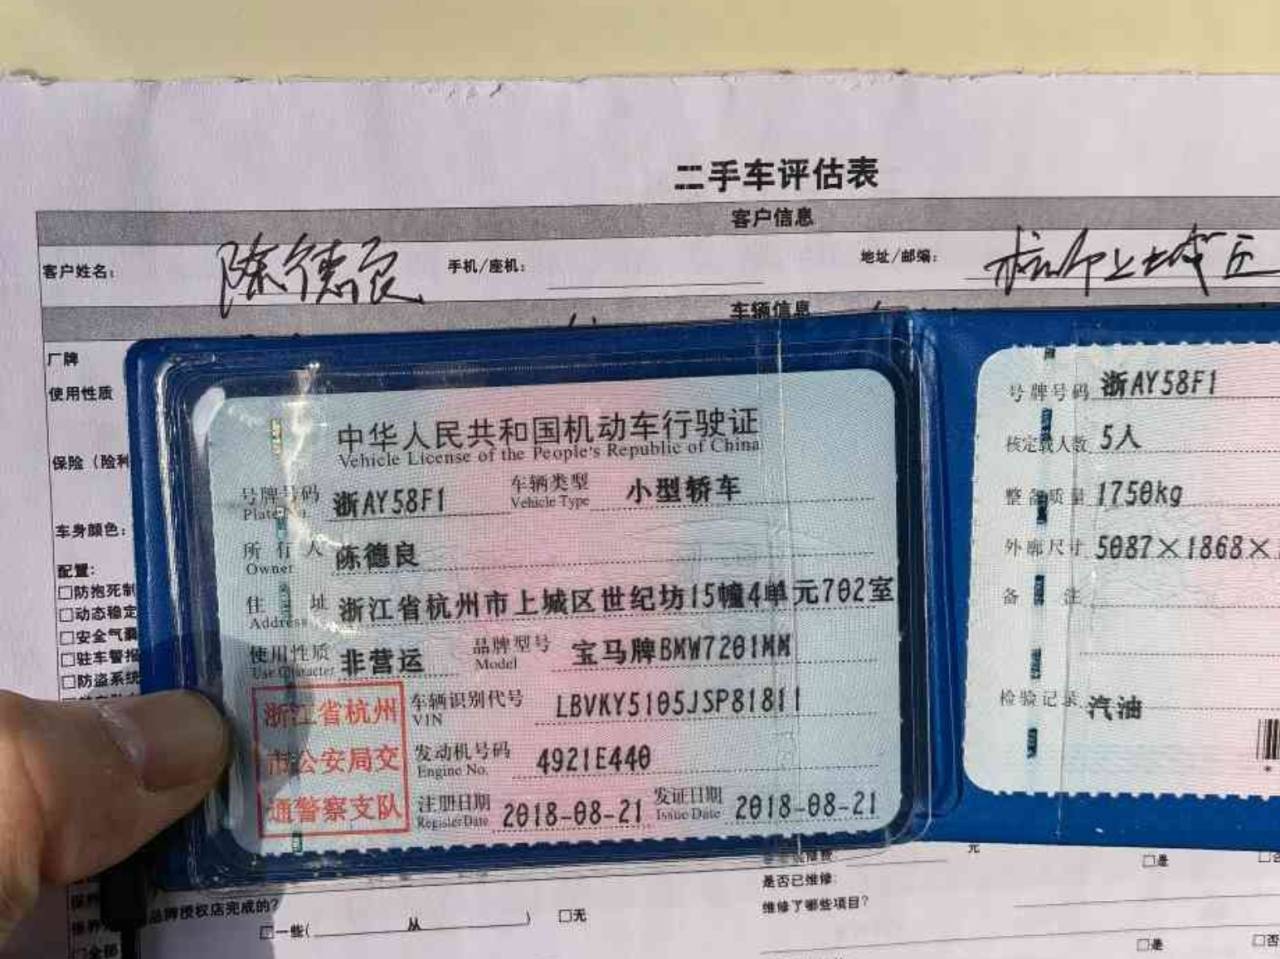 二手车评估表
客户信息
客户姓名： 陈德良 手机/座机： 地址/邮编： 杭州市上城区
车辆信息
厂牌
使用性质
保险（险种
车身颜色：
配置：
□防抱死制
□动态稳定
□安全气囊
□驻车警报
□防盗系统
中华人民共和国机动车行驶证
Vehicle License of the People's Republic of China
号牌号码 浙AY58F1 车辆类型 小型轿车
Plate No. Vehicle Type
所有人 陈德良
Owner
住址 浙江省杭州市上城区世纪坊15幢4单元702室
Address
使用性质 非营运 品牌型号 宝马牌BMW7201MM
Use Character Model
浙江省杭州
市公安局交
通警察支队
车辆识别代号 LBVKY5105JSP81811
VIN
发动机号码 4921E440
Engine No.
注册日期 2018-08-21 发证日期 2018-08-21
Register Date Issue Date
号牌号码 浙AY58F1
核定载人数 5人
整备质量 1750kg
外廓尺寸 5087×1868×
备注
检验记录 汽油
元 □是 □否
是否已维修：
品牌授权店完成的？ 维修了哪些项目？
□一些( 从 ) □无
□全部 □是 □否